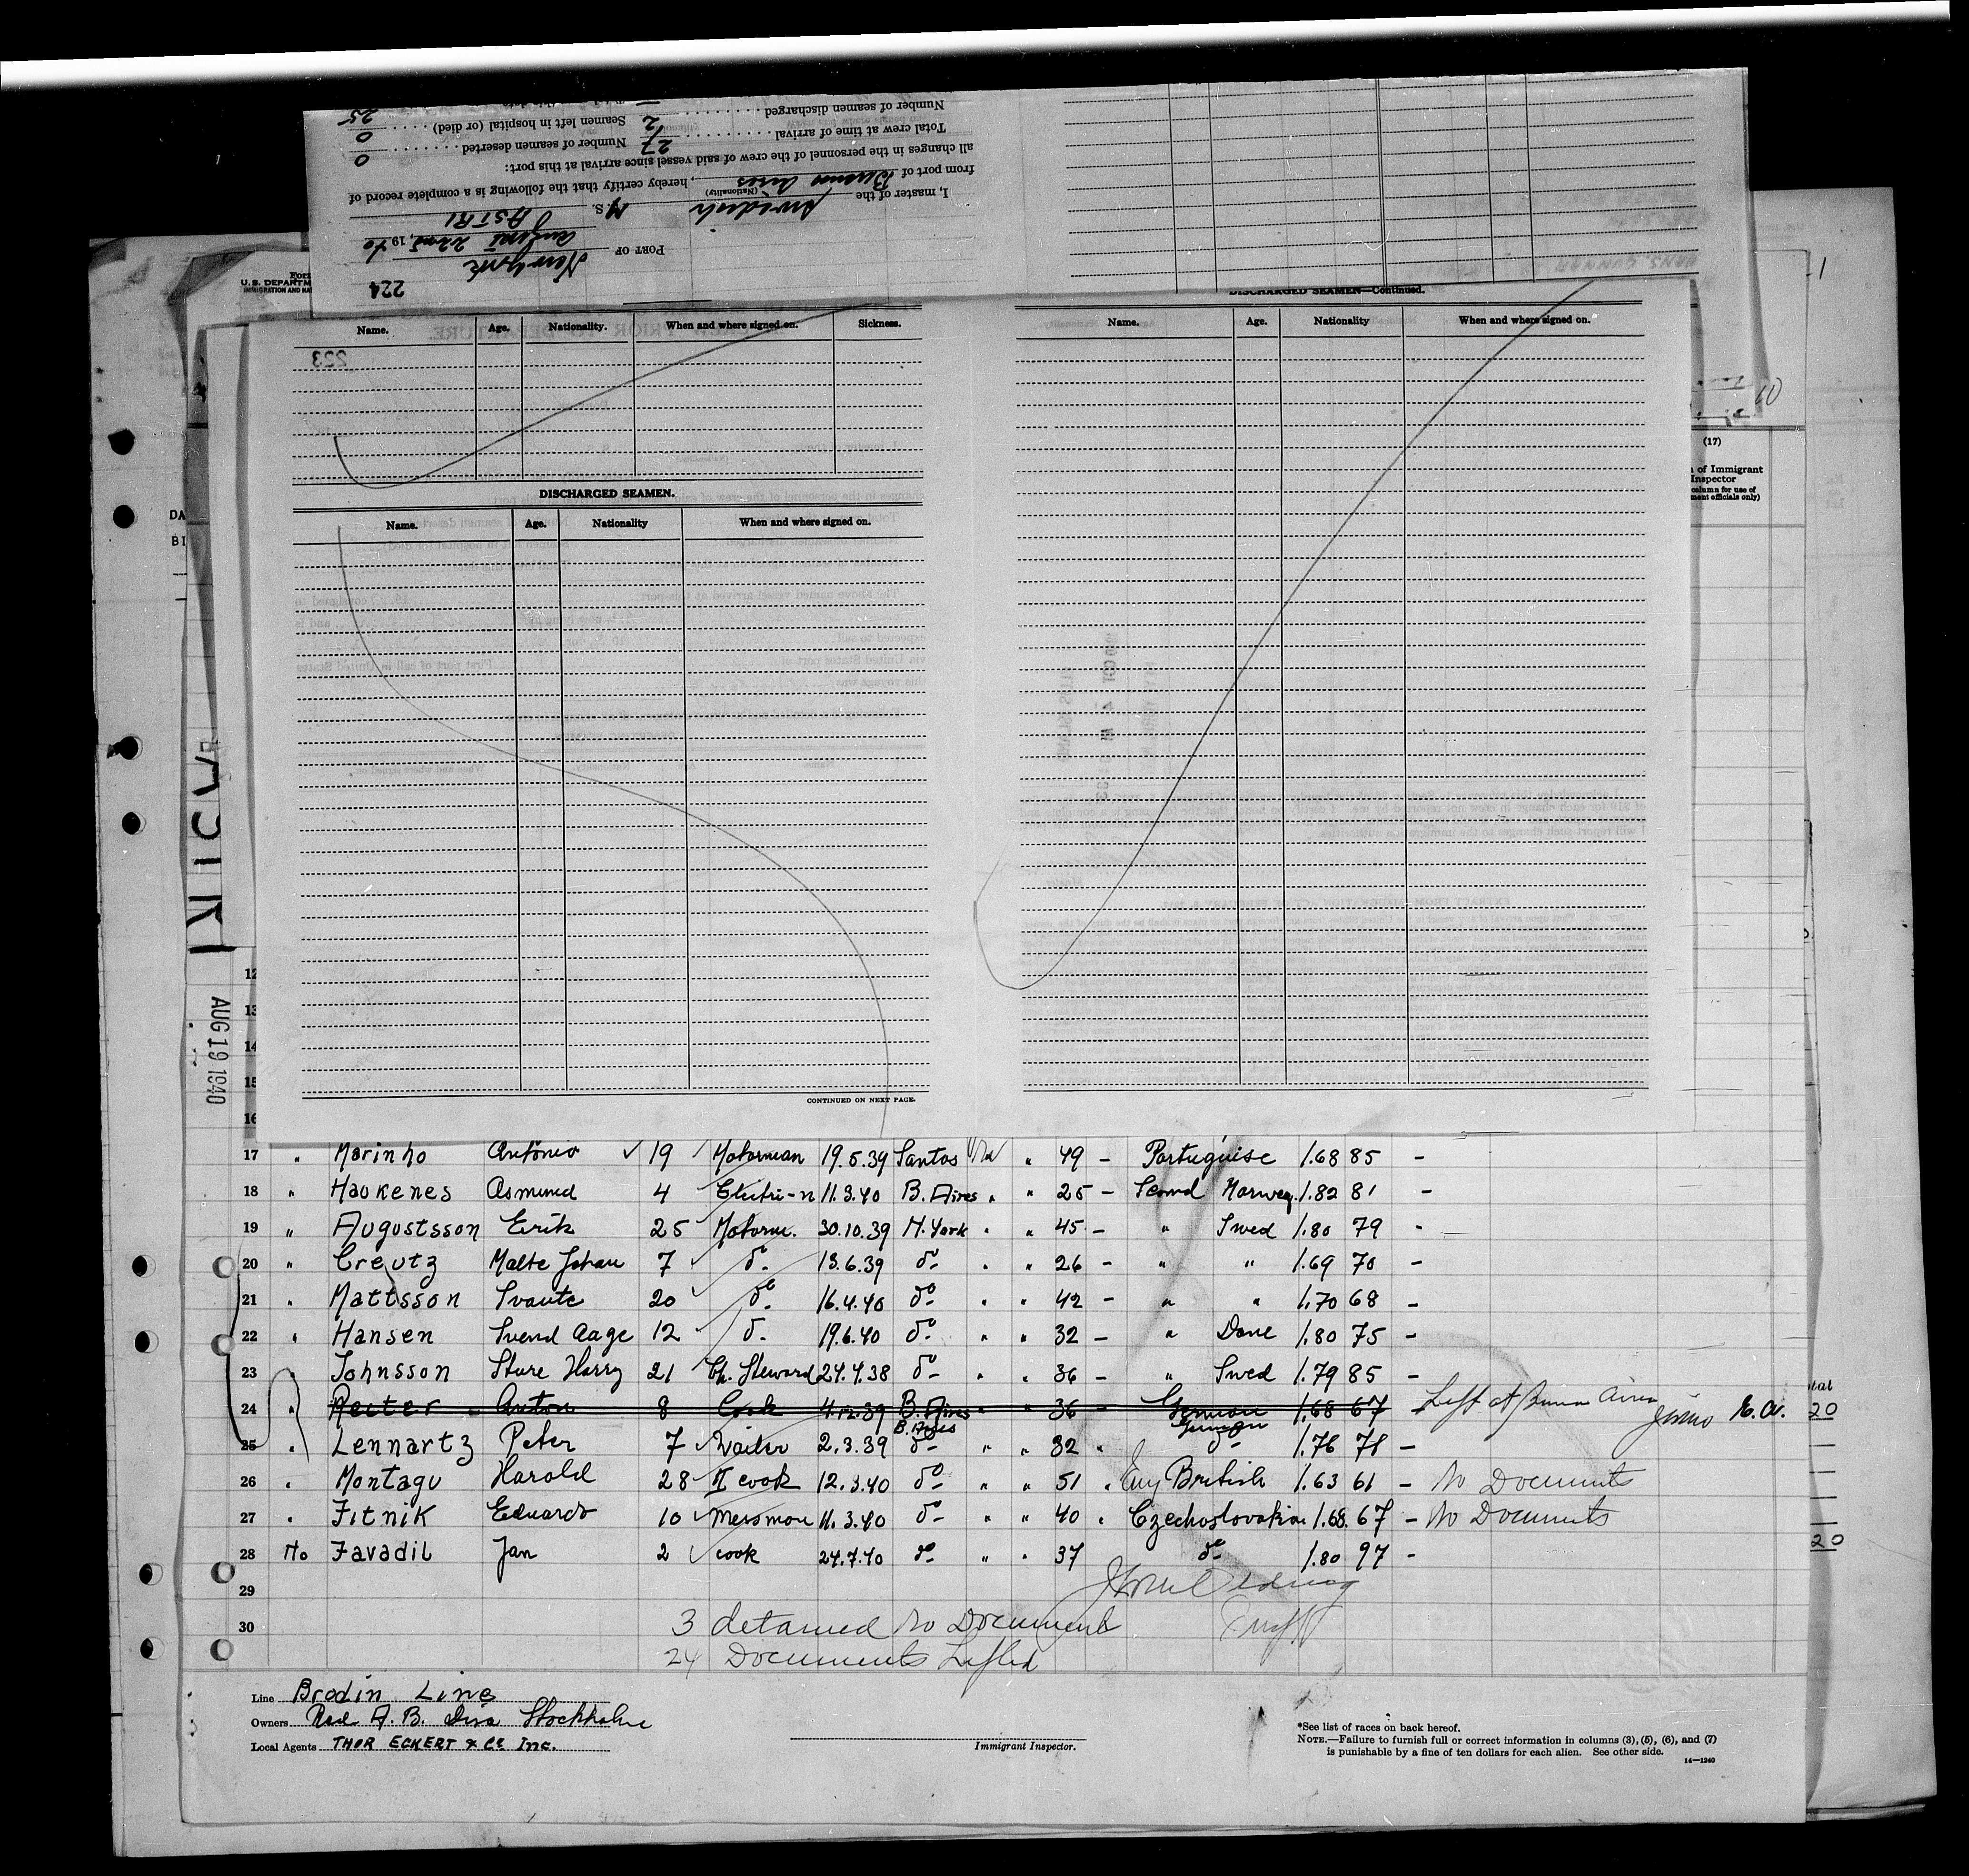 224
PORT OF New York
August 22nd, 1940
I, master of the Swedish M.S. ASTRI
(Nationality)
from port of Buenos Aires, hereby certify that the following is a complete record of
all changes in the personnel of the crew of said vessel since arrival at this port:
Total crew at time of arrival 27 Number of seamen deserted 0
Number of seamen discharged 2 Seamen left in hospital (or died) 0
25
U.S. DEPARTM
IMMIGRATION AND NA
Name. Age. Nationality. When and where signed on. Sickness.
223
DISCHARGED SEAMEN.
Name. Age. Nationality When and where signed on.
CONTINUED ON NEXT PAGE.
DISCHARGED SEAMEN—Continued.
Name. Age. Nationality When and where signed on.
1
10
(17)
of Immigrant
Inspector
column for use of
ment officials only)
DA
BI
AUG 19 1940
12
13
14
15
16
17 " Marinho Antonio ✓ 19 Motorman 19.5.39 Santos " 49 - Portuguise 1.68 85 -
18 " Haukenes Asmund 4 Electri-n 11.3.40 B. Aires " " 25 - Scand Norweg. 1.82 81 -
19 " Augustsson Erik 25 Motorm. 30.10.39 N. York " " 45 - " Swed 1.80 79 -
20 " Creutz Malte Johan 7 do- 13.6.39 do- " " 26 - " " 1.69 70 -
21 " Mattsson Svante 20 do- 16.4.40 do- " " 42 - " " 1.70 68 -
22 " Hansen Svend Aage 12 do- 19.6.40 do- " " 32 - " Dane 1.80 75 -
23 " Johnsson Sture Harry 21 Ch. Steward 24.4.38 do- " " 36 - " Swed 1.79 85 -
24 " Reiter Anton 8 Cook 4.12.39 B. Aires " " 36 - German 1.68 67 Left at Buenos Aires
25 " Lennartz Peter 7 ✓ Waiter 2.3.39 B. Aires do- " " 32 " German do- 1.76 78 -
26 " Montagu Harold 28 II cook 12.3.40 do- " " 51 " Eng British 1.63 61 - No Documents
27 " Fitnik Eduardo 10 ✓ Messman 11.3.40 do- " " 40 " Czechoslovakian 1.68 67 - No Documents
28 No Zavadil Jan 2 ✓ cook 24.7.40 do- " " 37 do- 1.80 97 -
29
30 3 detained no Document
24 Documents Lifted
tal
20
20
Line Brodin Line
Owners Red. A. B. Disa Stockholm
Local Agents THOR ECKERT & Co Inc.
Immigrant Inspector.
*See list of races on back hereof.
NOTE.—Failure to furnish full or correct information in columns (3), (5), (6), and (7)
is punishable by a fine of ten dollars for each alien. See other side.
14—1240